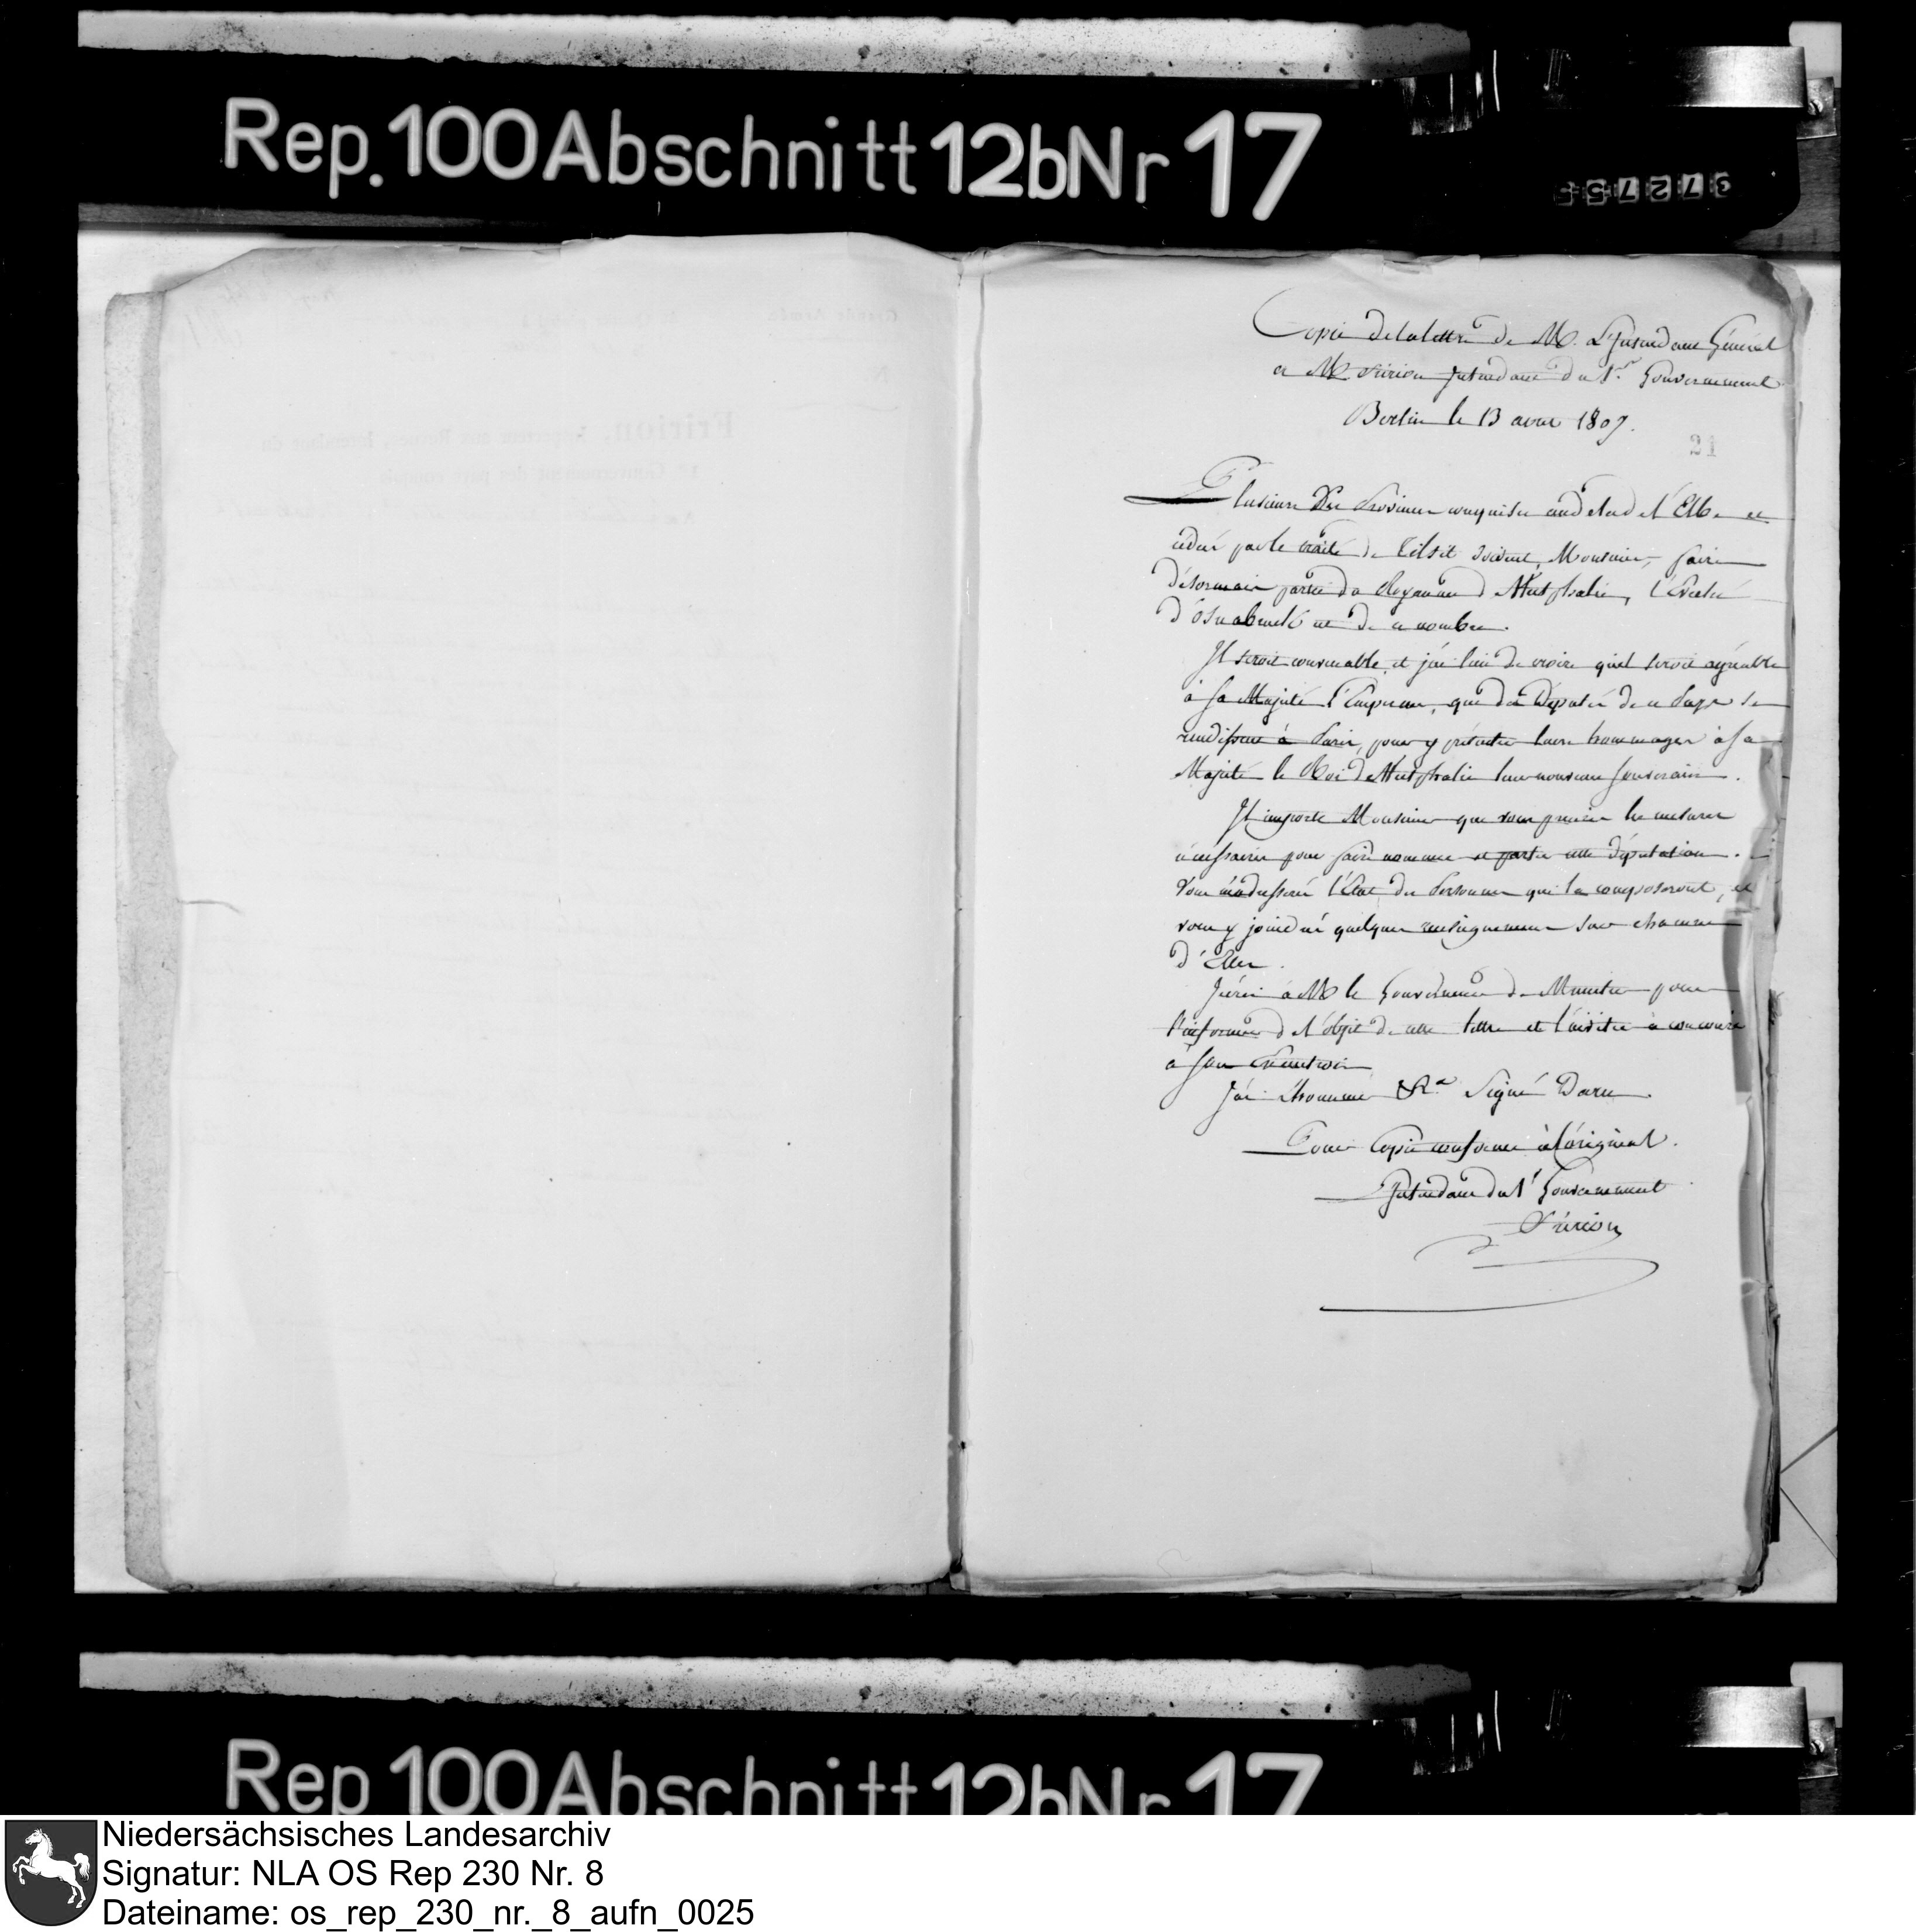 Rep. 100 Abschnitt 12b Nr 17
372755
Copie de la lettre de M. L'Intendant Général
a M. Fririon Intendant du 1er Gouvernement
Berlin le 13 aout 1807.
21
Plusieurs des Provinces conquises au delà de l'Elbe et
cédées par le traité de Tilsit doivent, Monsieur, faire
désormais partie du Royaume de Westphalie, l'Evêché
d'Osnabruck est de ce nombre.
Il seroit convenable, et j'ai lieu de croire qu'il seroit agréable
à Sa Majesté l'Empereur, que des Députés de ce Pays se
rendissent à Paris, pour y présenter leurs hommages à Sa
Majesté le Roi de Westphalie leur nouveau Souverain.
Il importe Monsieur que vous preniez les mesures
nécessaires pour faire nommer et partir cette députation.
Vous m'adresserez l'Etat des Personnes qui la composeront, et
vous y joindrez quelques renseignemens sur chacune
d'Elles.
J'écris à M. le Gouverneur de Munster pour
l'informer de l'objet de cette lettre et l'inviter à concourir
à son exécution
J'ai l'honneur &a. Signé Daru
Pour Copie conforme à l'original.
L'Intendant du 1er Gouvernement
Fririon
Rep 100 Abschnitt 12b Nr 17
Niedersächsisches Landesarchiv
Signatur: NLA OS Rep 230 Nr. 8
Dateiname: os_rep_230_nr._8_aufn_0025